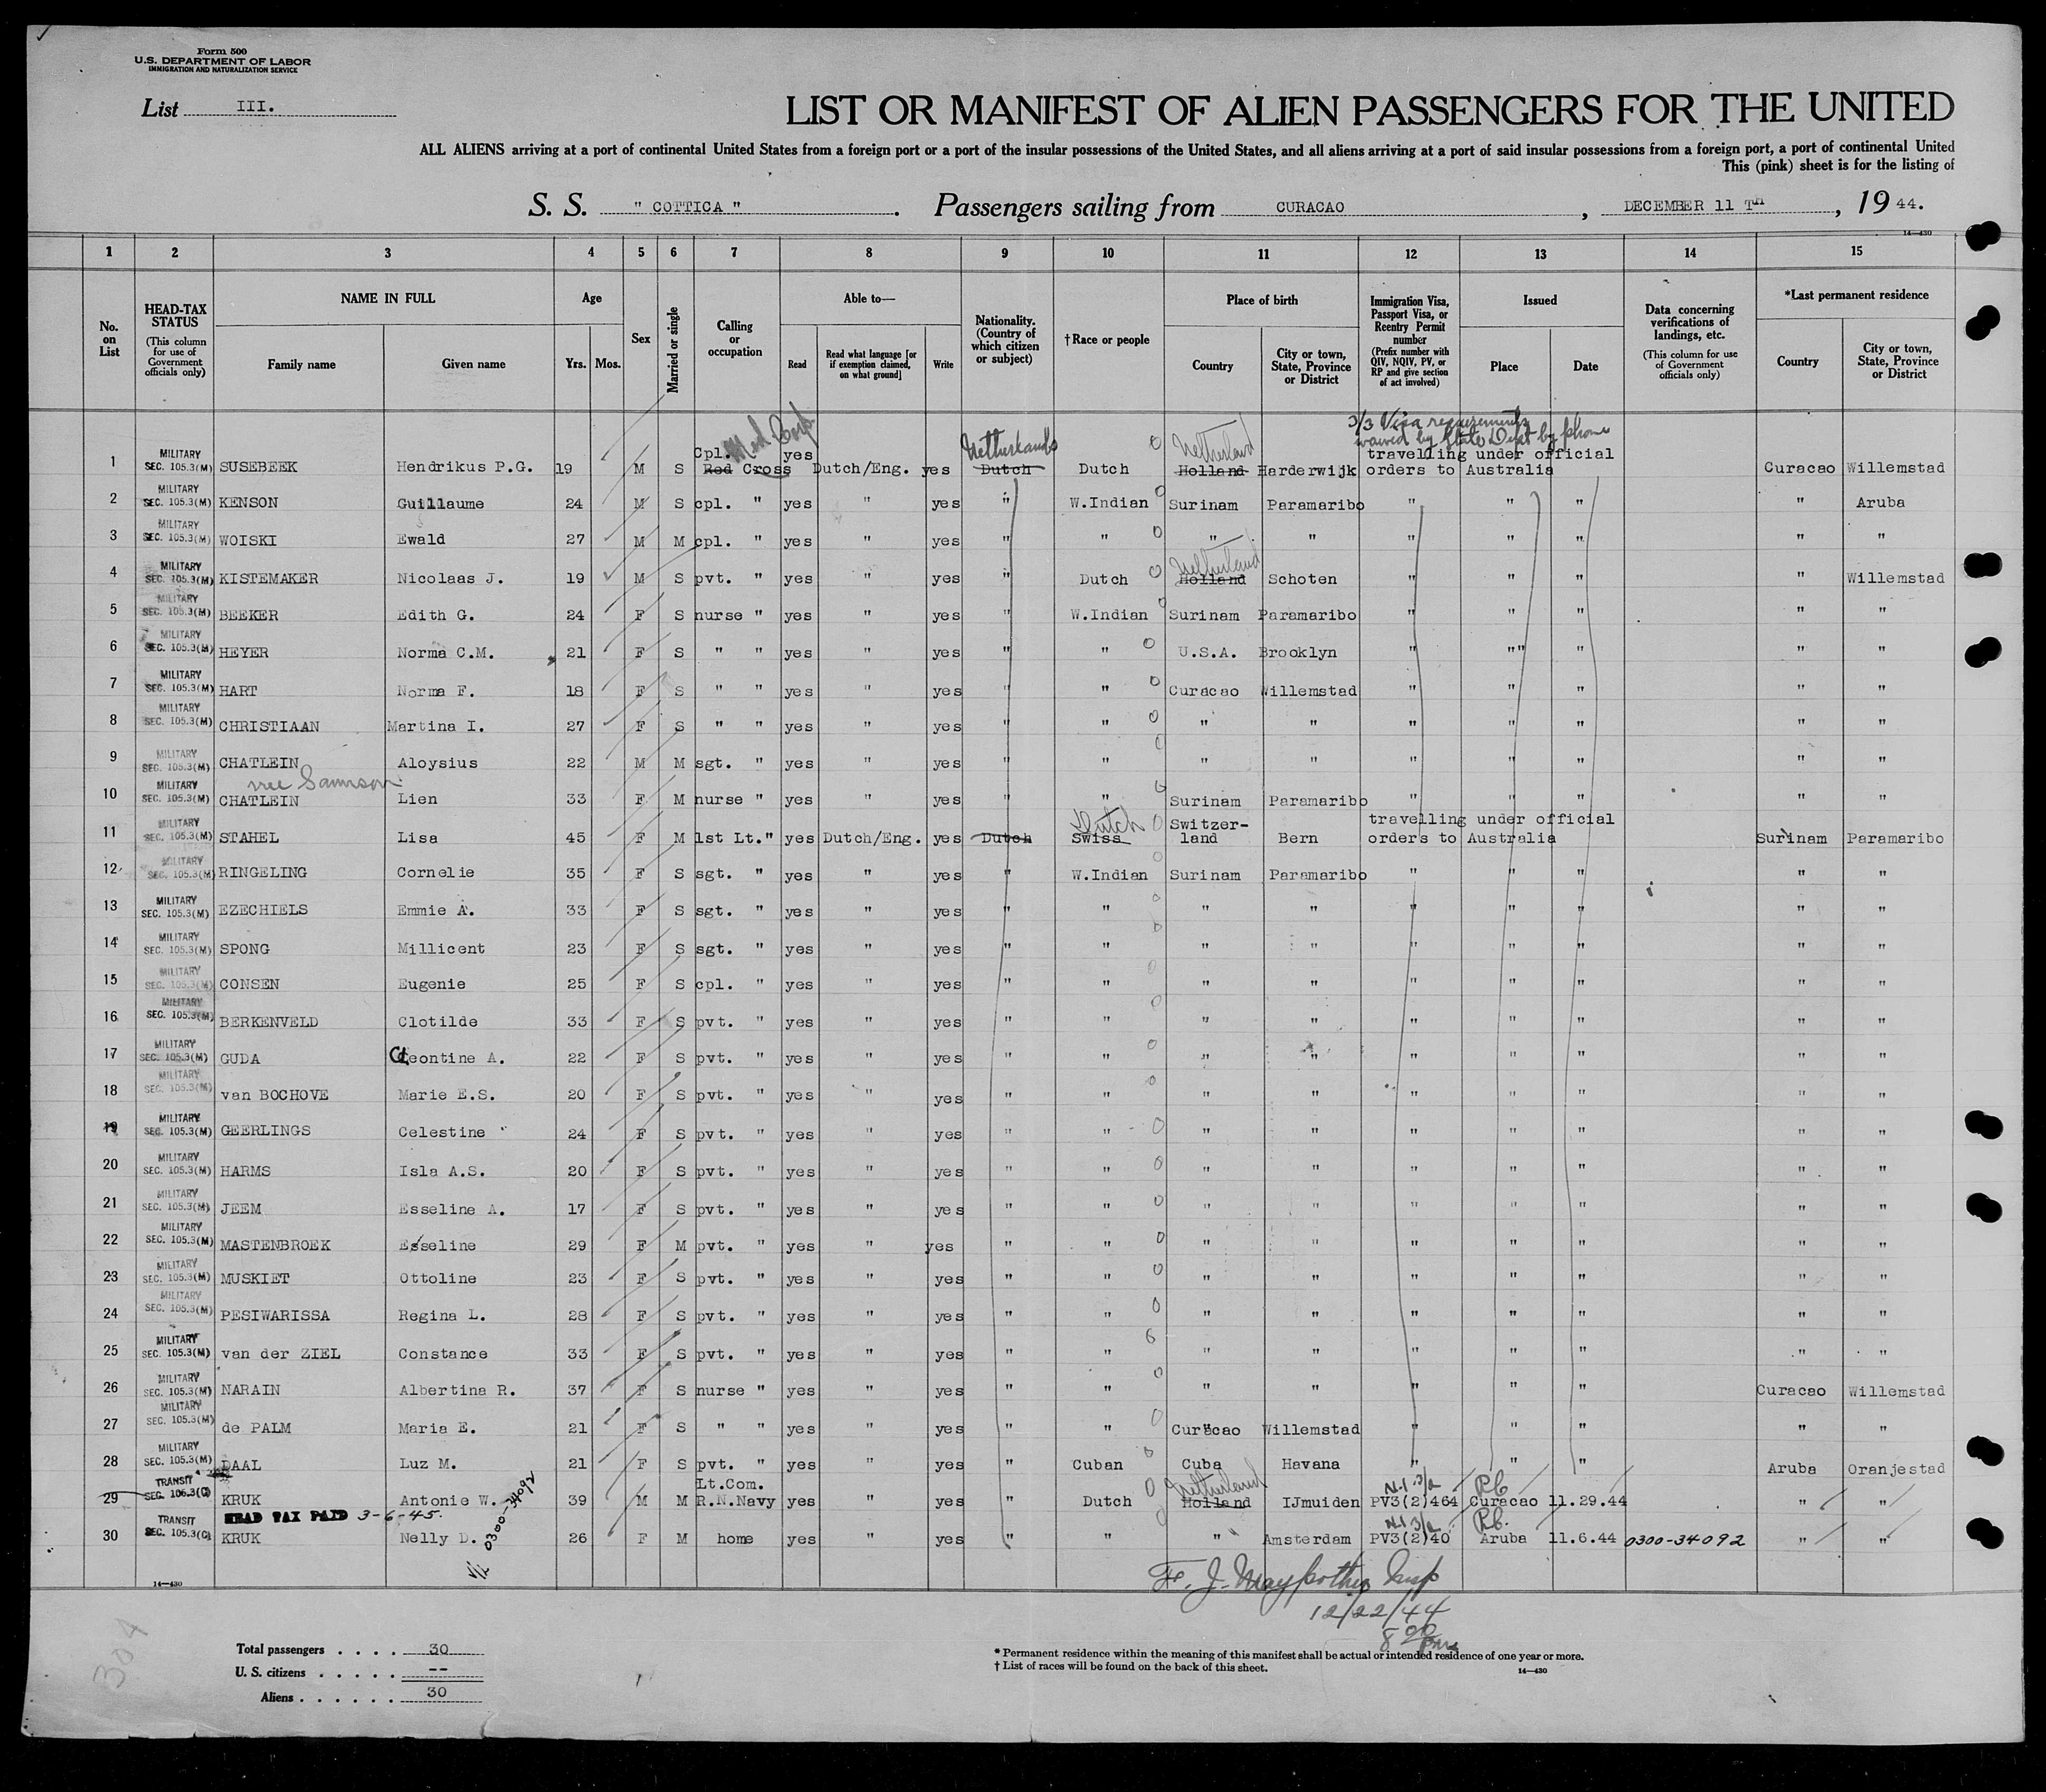 Form 500
U.S. DEPARTMENT OF LABOR
IMMIGRATION AND NATURALIZATION SERVICE
List III.
LIST OR MANIFEST OF ALIEN PASSENGERS FOR THE UNITED
ALL ALIENS arriving at a port of continental United States from a foreign port or a port of the insular possessions of the United States, and all aliens arriving at a port of said insular possessions from a foreign port, a port of continental United
This (pink) sheet is for the listing of
S. S. " COTTICA ". Passengers sailing from CURACAO, DECEMBER 11 TH, 19 44.
14—430
1 2 3 4 5 6 7 8 9 10 11 12 13 14 15
No. on List
HEAD-TAX STATUS (This column for use of Government officials only)
NAME IN FULL Family name Given name
Age Yrs. Mos.
Sex
Married or single
Calling or occupation
Able to— Read Read what language [or if exemption claimed, on what ground] Write
Nationality. (Country of which citizen or subject)
†Race or people
Place of birth Country City or town, State, Province or District
Immigration Visa, Passport Visa, or Reentry Permit number (Prefix number with QIV, NQIV, PV, or RP and give section of act involved)
Issued Place Date
Data concerning verifications of landings, etc. (This column for use of Government officials only)
*Last permanent residence Country City or town, State, Province or District
3/3 Visa requirements
waived by State Dept by phone
1 MILITARY SEC. 105.3(M) SUSEBEEK Hendrikus P.G. 19 M S Cpl. Med. Corp Red Cross yes Dutch/Eng. yes Netherlands Dutch Dutch Netherland Holland Harderwijk travelling under official orders to Australia Curacao Willemstad
2 MILITARY SEC. 105.3(M) KENSON Guillaume 24 M S cpl. " yes " yes " W.Indian Surinam Paramaribo " " " " Aruba
3 MILITARY SEC. 105.3(M) WOISKI Ewald 27 M M cpl. " yes " yes " " " " " " " " "
4 MILITARY SEC. 105.3(M) KISTEMAKER Nicolaas J. 19 M S pvt. " yes " yes " Dutch Netherland Holland Schoten " " " " Willemstad
5 MILITARY SEC. 105.3(M) BEEKER Edith G. 24 F S nurse " yes " yes " W.Indian Surinam Paramaribo " " " " "
6 MILITARY SEC. 105.3(M) HEYER Norma C.M. 21 F S " " yes " yes " " U.S.A. Brooklyn " "" " " "
7 MILITARY SEC. 105.3(M) HART Norma F. 18 F S " " yes " yes " " Curacao Willemstad " " " " "
8 MILITARY SEC. 105.3(M) CHRISTIAAN Martina I. 27 F S " " yes " yes " " " " " " " " "
9 MILITARY SEC. 105.3(M) CHATLEIN Aloysius 22 M M sgt. " yes " yes " " " " " " " " "
nee Samson
10 MILITARY SEC. 105.3(M) CHATLEIN Lien 33 F M nurse " yes " yes " " Surinam Paramaribo " " " " "
11 MILITARY SEC. 105.3(M) STAHEL Lisa 45 F M 1st Lt." yes Dutch/Eng. yes Dutch Dutch Swiss Switzer-land Bern travelling under official orders to Australia Surinam Paramaribo
12 MILITARY SEC. 105.3(M) RINGELING Cornelie 35 F S sgt. " yes " yes " W.Indian Surinam Paramaribo " " " " "
13 MILITARY SEC. 105.3(M) EZECHIELS Emmie A. 33 F S sgt. " yes " yes " " " " " " " " "
14 MILITARY SEC. 105.3(M) SPONG Millicent 23 F S sgt. " yes " yes " " " " " " " " "
15 MILITARY SEC. 105.3(M) CONSEN Eugenie 25 F S cpl. " yes " yes " " " " " " " " "
16 MILITARY SEC. 105.3(M) BERKENVELD Clotilde 33 F S pvt. " yes " yes " " " " " " " " "
17 MILITARY SEC. 105.3(M) GUDA Cleontine A. 22 F S pvt. " yes " yes " " " " " " " " "
18 MILITARY SEC. 105.3(M) van BOCHOVE Marie E.S. 20 F S pvt. " yes " yes " " " " " " " " "
19 MILITARY SEC. 105.3(M) GEERLINGS Celestine 24 F S pvt. " yes " yes " " " " " " " " "
20 MILITARY SEC. 105.3(M) HARMS Isla A.S. 20 F S pvt. " yes " yes " " " " " " " " "
21 MILITARY SEC. 105.3(M) JEEM Esseline A. 17 F S pvt. " yes " yes " " " " " " " " "
22 MILITARY SEC. 105.3(M) MASTENBROEK Esseline 29 F M pvt. " yes " yes " " " " " " " " "
23 MILITARY SEC. 105.3(M) MUSKIET Ottoline 23 F S pvt. " yes " yes " " " " " " " " "
24 MILITARY SEC. 105.3(M) PESIWARISSA Regina L. 28 F S pvt. " yes " yes " " " " " " " " "
25 MILITARY SEC. 105.3(M) van der ZIEL Constance 33 F S pvt. " yes " yes " " " " " " " " "
26 MILITARY SEC. 105.3(M) NARAIN Albertina R. 37 F S nurse " yes " yes " " " " " " " Curacao Willemstad
27 MILITARY SEC. 105.3(M) de PALM Maria E. 21 F S " " yes " yes " " Curacao Willemstad " " " " "
28 MILITARY SEC. 105.3(M) DAAL Luz M. 21 F S pvt. " yes " yes " Cuban Cuba Havana " " " Aruba Oranjestad
29 TRANSIT SEC. 105.3(C) KRUK Antonie W. 39 M M Lt.Com. R.N.Navy yes " yes " Dutch Netherland Holland IJmuiden PV3(2)464 Curacao 11.29.44 " "
HEAD TAX PAID 3-6-45.
0300-34092
30 TRANSIT SEC. 105.3(C) KRUK Nelly D. 26 F M home yes " yes " " Amsterdam PV3(2)40 Aruba 11.6.44 0300-34092 " "
14—430
12/22/44
Total passengers . . . . 30
U. S. citizens . . . . . --
Aliens . . . . . . 30
304
* Permanent residence within the meaning of this manifest shall be actual or intended residence of one year or more.
† List of races will be found on the back of this sheet.
14—430